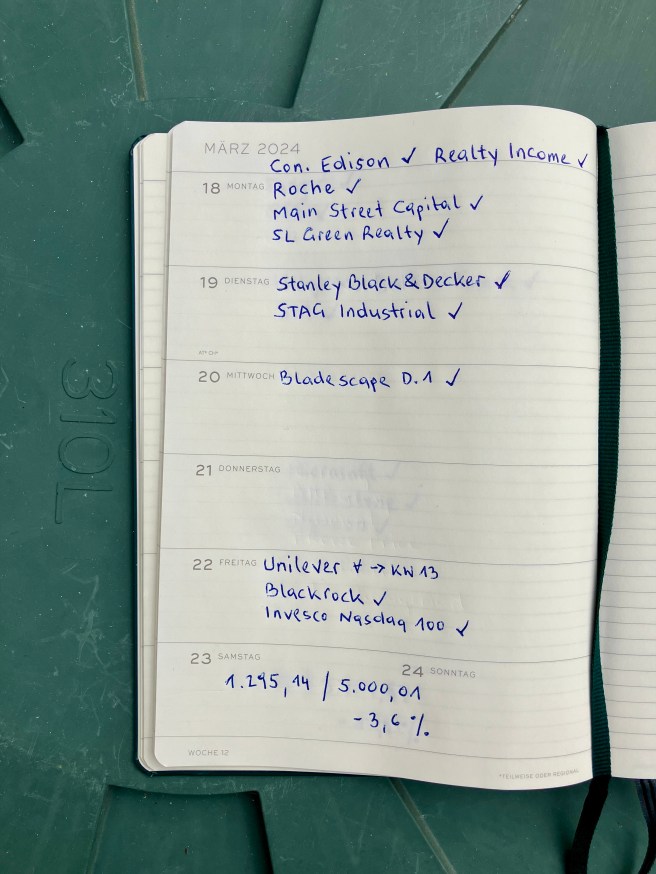 MÄRZ 2024
Con. Edison ✓ Realty Income ✓
18 MONTAG Roche ✓
Main Street Capital ✓
SL Green Realty ✓
19 DIENSTAG Stanley Black & Decker ✓
STAG Industrial ✓
20 MITTWOCH Bladescape D.1 ✓
21 DONNERSTAG
22 FREITAG Unilever → KW 13
Blackrock ✓
Invesco Nasdaq 100 ✓
23 SAMSTAG
24 SONNTAG
1.295,14 / 5.000,01
-3,6 %
WOCHE 12
*TEILWEISE ODER REGIONAL
310L